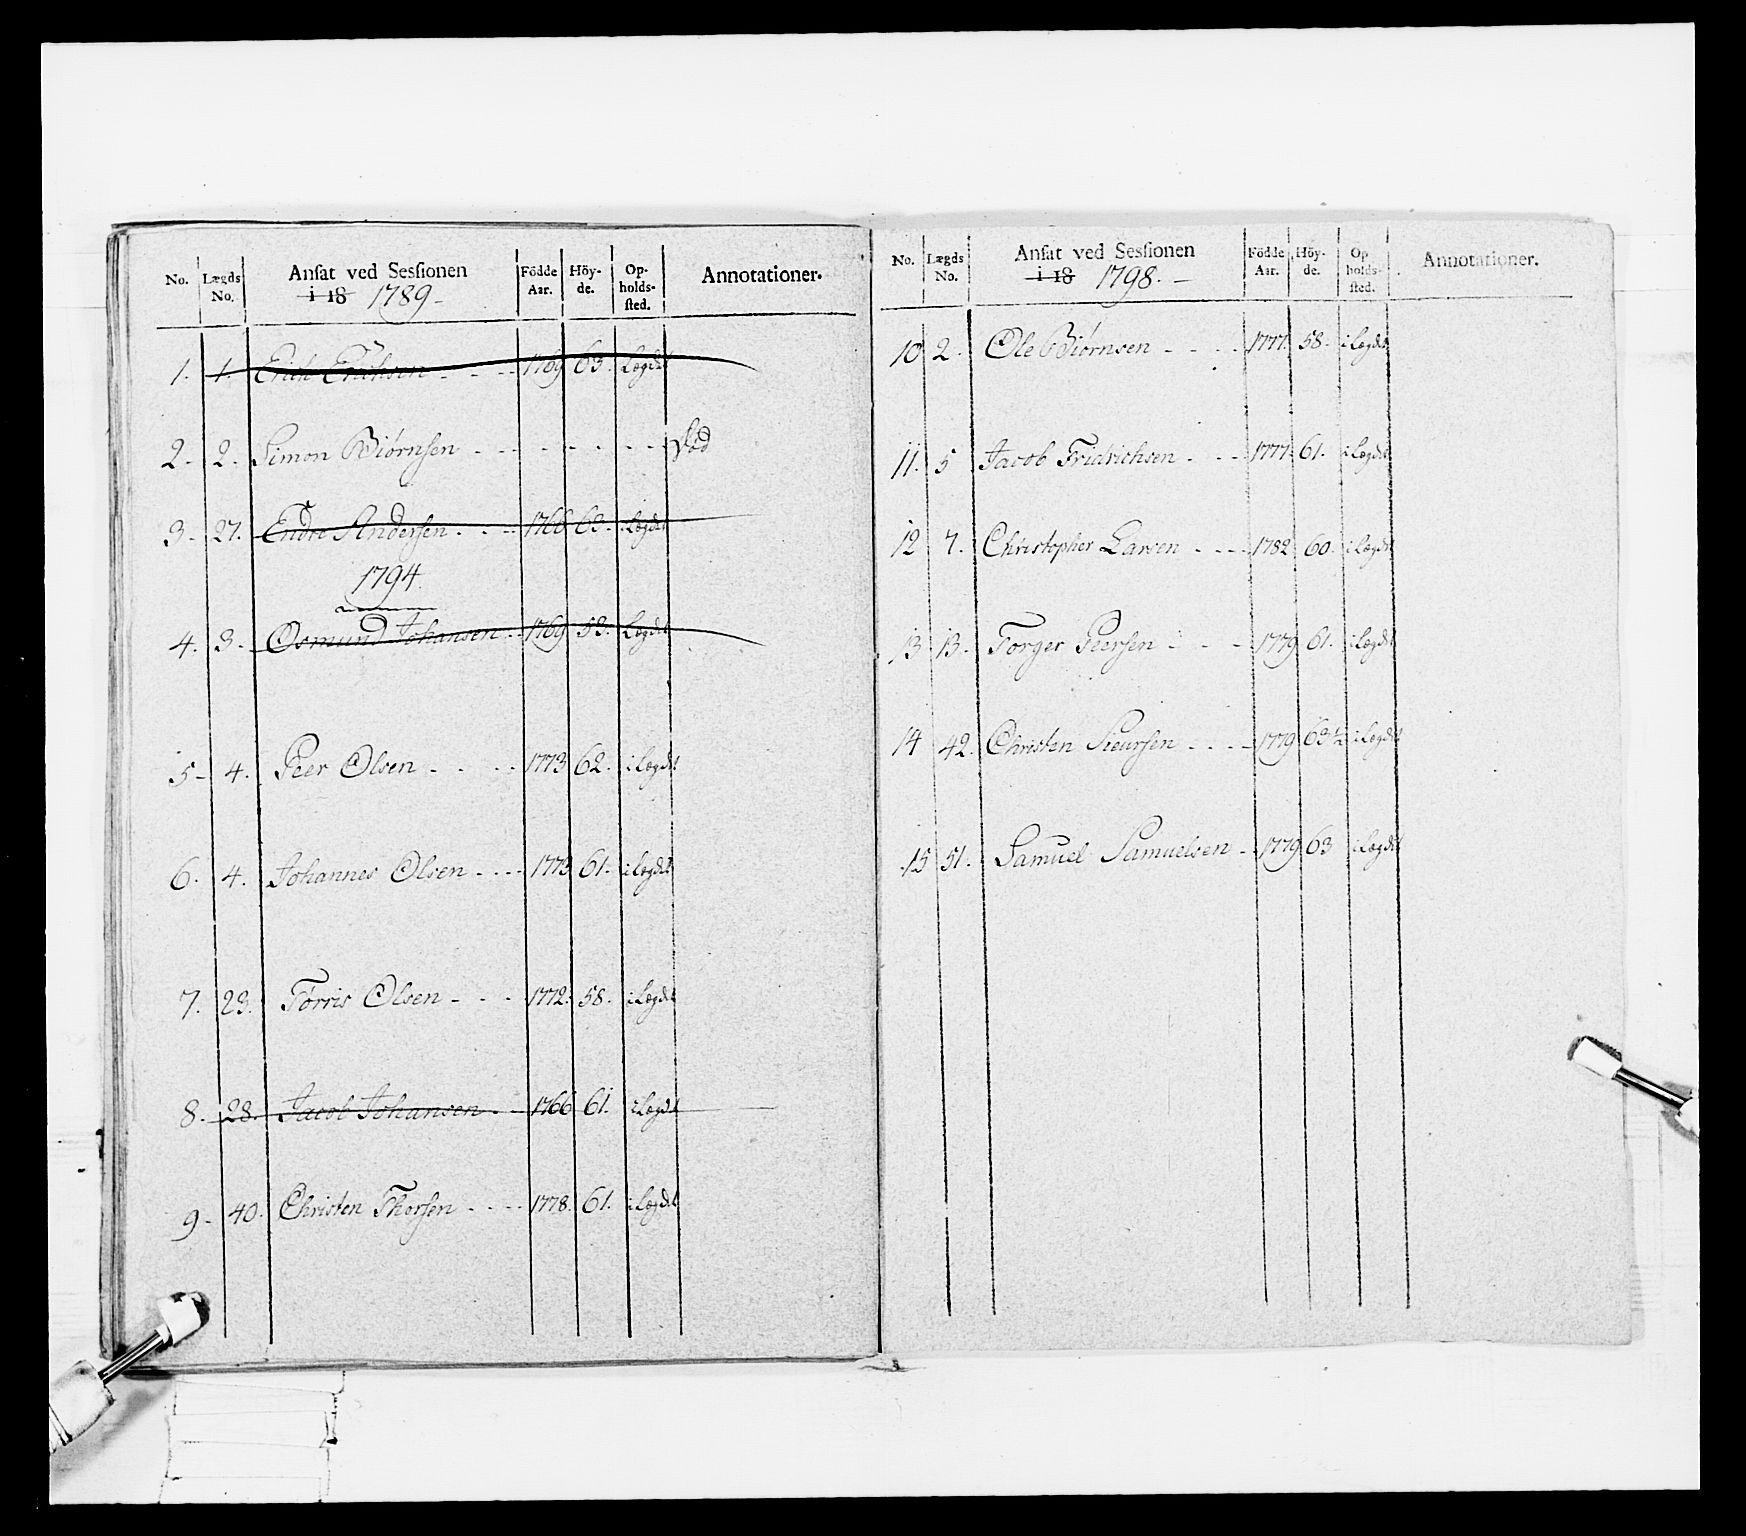 No. Lægds No. Ansat ved Sessionen i 18 1789 Födde Aar. Höy-de. Op-holds-sted. Annotationer.
1. 1. Erich Erichsen - - - 1769 63. Lægdet
2. 2. Simon Biørnsen - - - - - - - Død
3. 27. Endre Andersen - - - 1766 63. i Lægdet
1794.
4. 3. Osmund Johansen - - 1769 53. Lægdet
5. 4. Peer Olsen - - - - 1773 62. i Lægdet
6. 4. Johannes Olsen - - - - 1773 61. i Lægdet
7. 23. Torris Olsen - - - 1772. 58. i Lægdet
8. 28. Jacob Johansen - - 1766 61. i Lægdet
9. 40. Christen Thorsen - - - - 1778. 61. i Lægdet
No. Lægds No. Ansat ved Sessionen i 18 1798. Födde Aar. Höy-de. Op holds-sted. Annotationer.
10 2. Ole Biørnsen - - - - 1777. 58. i Lægdet
11. 5 Jacob Fridrichsen - - - - 1777. 61. i Lægdet
12 7. Christopher Larsen - - - - 1782 60. i Lægdet
13 13. Torger Peersen - - - 1779 61. i Lægdet
14 42. Christen Sieursen - - - - 1779 63 1/2 i Lægdet
15 51. Samuel Samuelsen - - 1779 63 i Lægdet